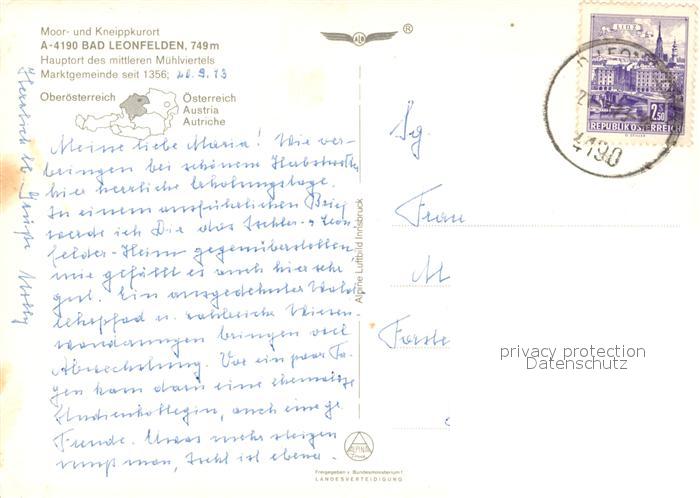 Moor- und Kneippkurort
A-4190 BAD LEONFELDEN, 749 m
Hauptort des mittleren Mühlviertels
Marktgemeinde seit 1356; 20.9.73
Oberösterreich
Österreich
Austria
Autriche
Meine liebe Maria! Wir ver-
bringen bei schönem Herbstwetter
hier herrliche Erholungstage.
In einem ausführlichen Brief
werde ich Dir das Ischler- u. Leon-
felder-Heim gegenüberstellen,
mir gefällt es auch hier sehr
gut. Ein ausgedehnter Wald-
lehrpfad u. zahlreiche Wiesen-
wanderungen bringen viel
Abwechslung. Vor ein paar Ta-
gen kam dann eine ehemalige
Studienkollegin, auch eine gr.
Freude. Etwas mehr steigen
muß man, Ischl ist ebener.
Herzlich
Grüße
Alpine Luftbild Innsbruck
AlB
®
LINZ
2.50
REPUBLIK ÖSTERREICH
4190
Sg.
Frau
M
privacy protection
Datenschutz
ALPINE
Freigegeben v. Bundesministerium f.
LANDESVERTEIDIGUNG